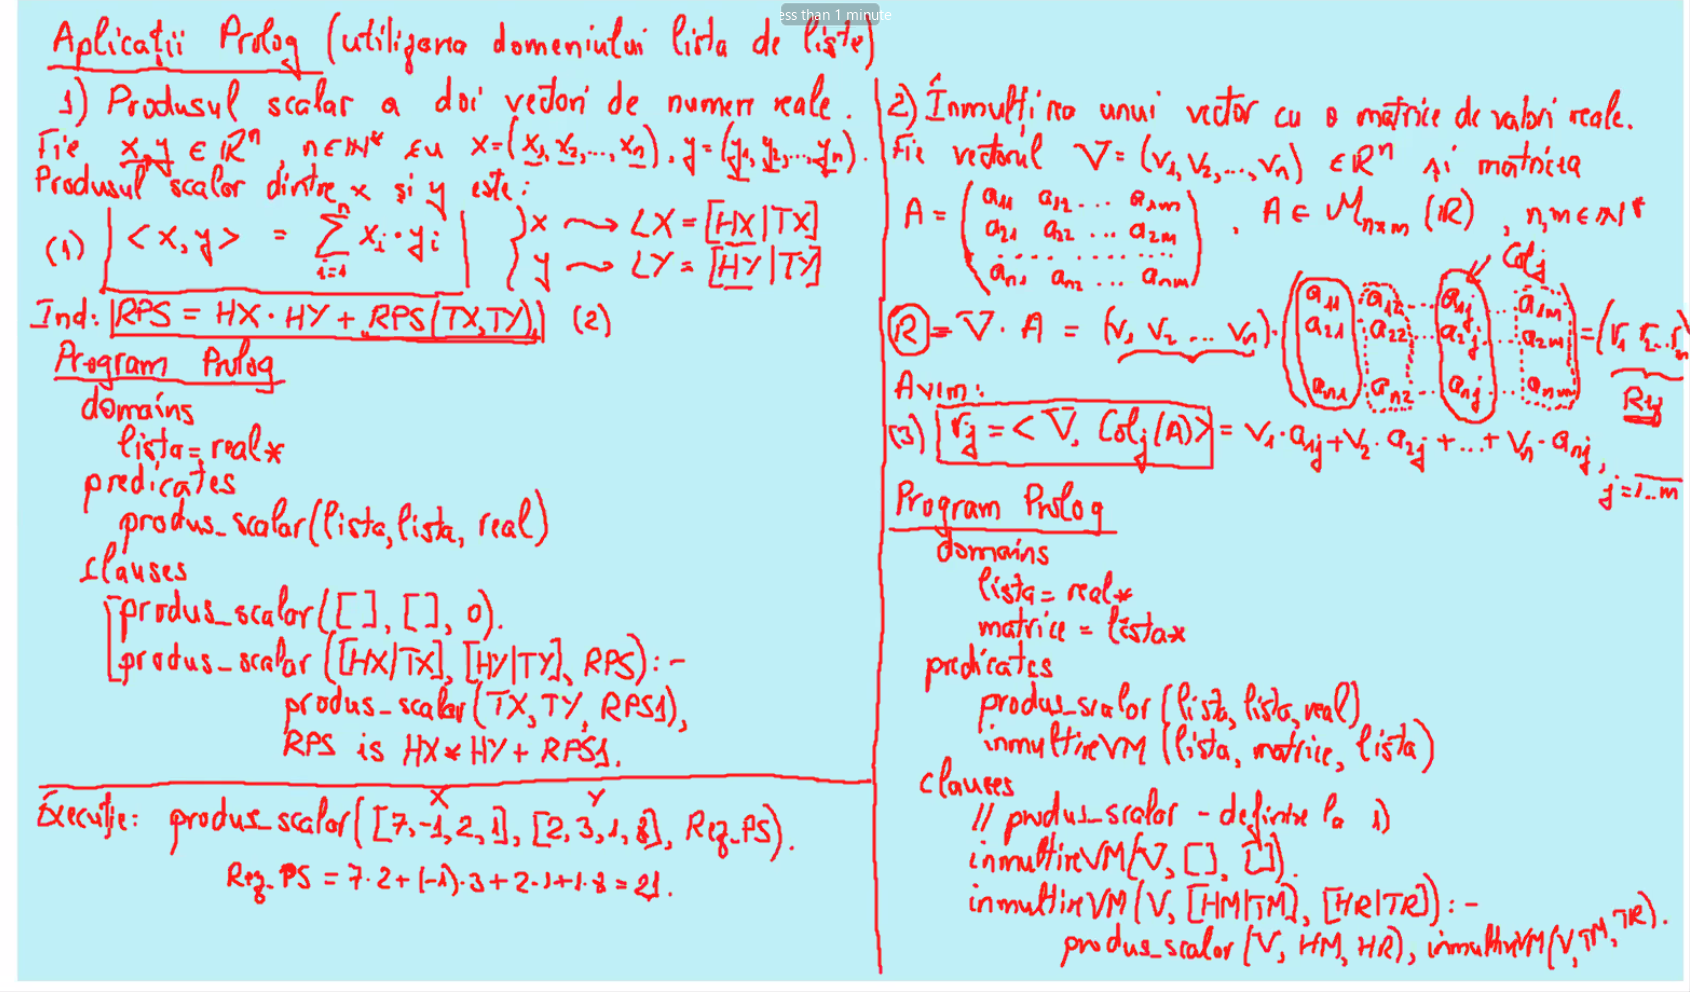 ess than 1 minute
Aplicații Prolog (utilizarea domeniului lista de liste)
1) Produsul scalar a doi vectori de numere reale.
Fie x, y ∈ ℝⁿ, n∈ℕ* cu x=(x₁, x₂,..., xₙ), y=(y₁, y₂,..., yₙ).
Produsul scalar dintre x și y este:
(1) <x, y> = ∑ᵢ₌₁ⁿ xᵢ·yᵢ
x ⇝ LX = [HX|TX]
y ⇝ LY = [HY|TY]
Ind: RPS = HX·HY + RPS(TX,TY), (2)
Program Prolog
domains
lista=real*
predicates
produs_scalar(lista,lista, real)
clauses
produs_scalar([ ], [ ], 0).
produs_scalar([HX|TX], [HY|TY], RPS):-
produs_scalar(TX, TY, RPS1),
RPS is HX*HY + RPS1.
X Y
Execuție: produs_scalar([7,-1,2,1], [2,3,1,8], Rez_PS).
Rez_PS = 7·2+(-1)·3+2·1+1·8=21.
2) Înmulțirea unui vector cu o matrice de valori reale.
Fie vectorul V=(v₁,v₂,...,vₙ) ∈ℝⁿ și matricea
A = (a₁₁ a₁₂ ... a₁ₘ
a₂₁ a₂₂ ... a₂ₘ
............
aₙ₁ aₙ₂ ... aₙₘ), A ∈ ℳₙₓₘ(ℝ), n,m∈ℕ*
Colⱼ
R = V·A = (v₁ v₂ ... vₙ)·(a₁₁ a₁₂ ... a₁ⱼ ... a₁ₘ
a₂₁ a₂₂ ... a₂ⱼ ... a₂ₘ
aₙ₁ aₙ₂ ... aₙⱼ ... aₙₘ) = (r₁ r₂...rₘ)
Avim:
(3) rⱼ = <V, Colⱼ(A)> = v₁·a₁ⱼ+v₂·a₂ⱼ+...+vₙ·aₙⱼ,
j=1..m
Program Prolog
domains
lista=real*
matrice = lista*
predicates
produs_scalar(lista, lista, real)
inmultireVM (lista, matrice, lista)
clauses
// produs_scalar - definire la 1)
inmultireVM(V, [ ], [ ]).
inmultireVM(V, [HM|TM], [HR|TR]):-
produs_scalar(V, HM, HR), inmultireVM(V,TM,TR).